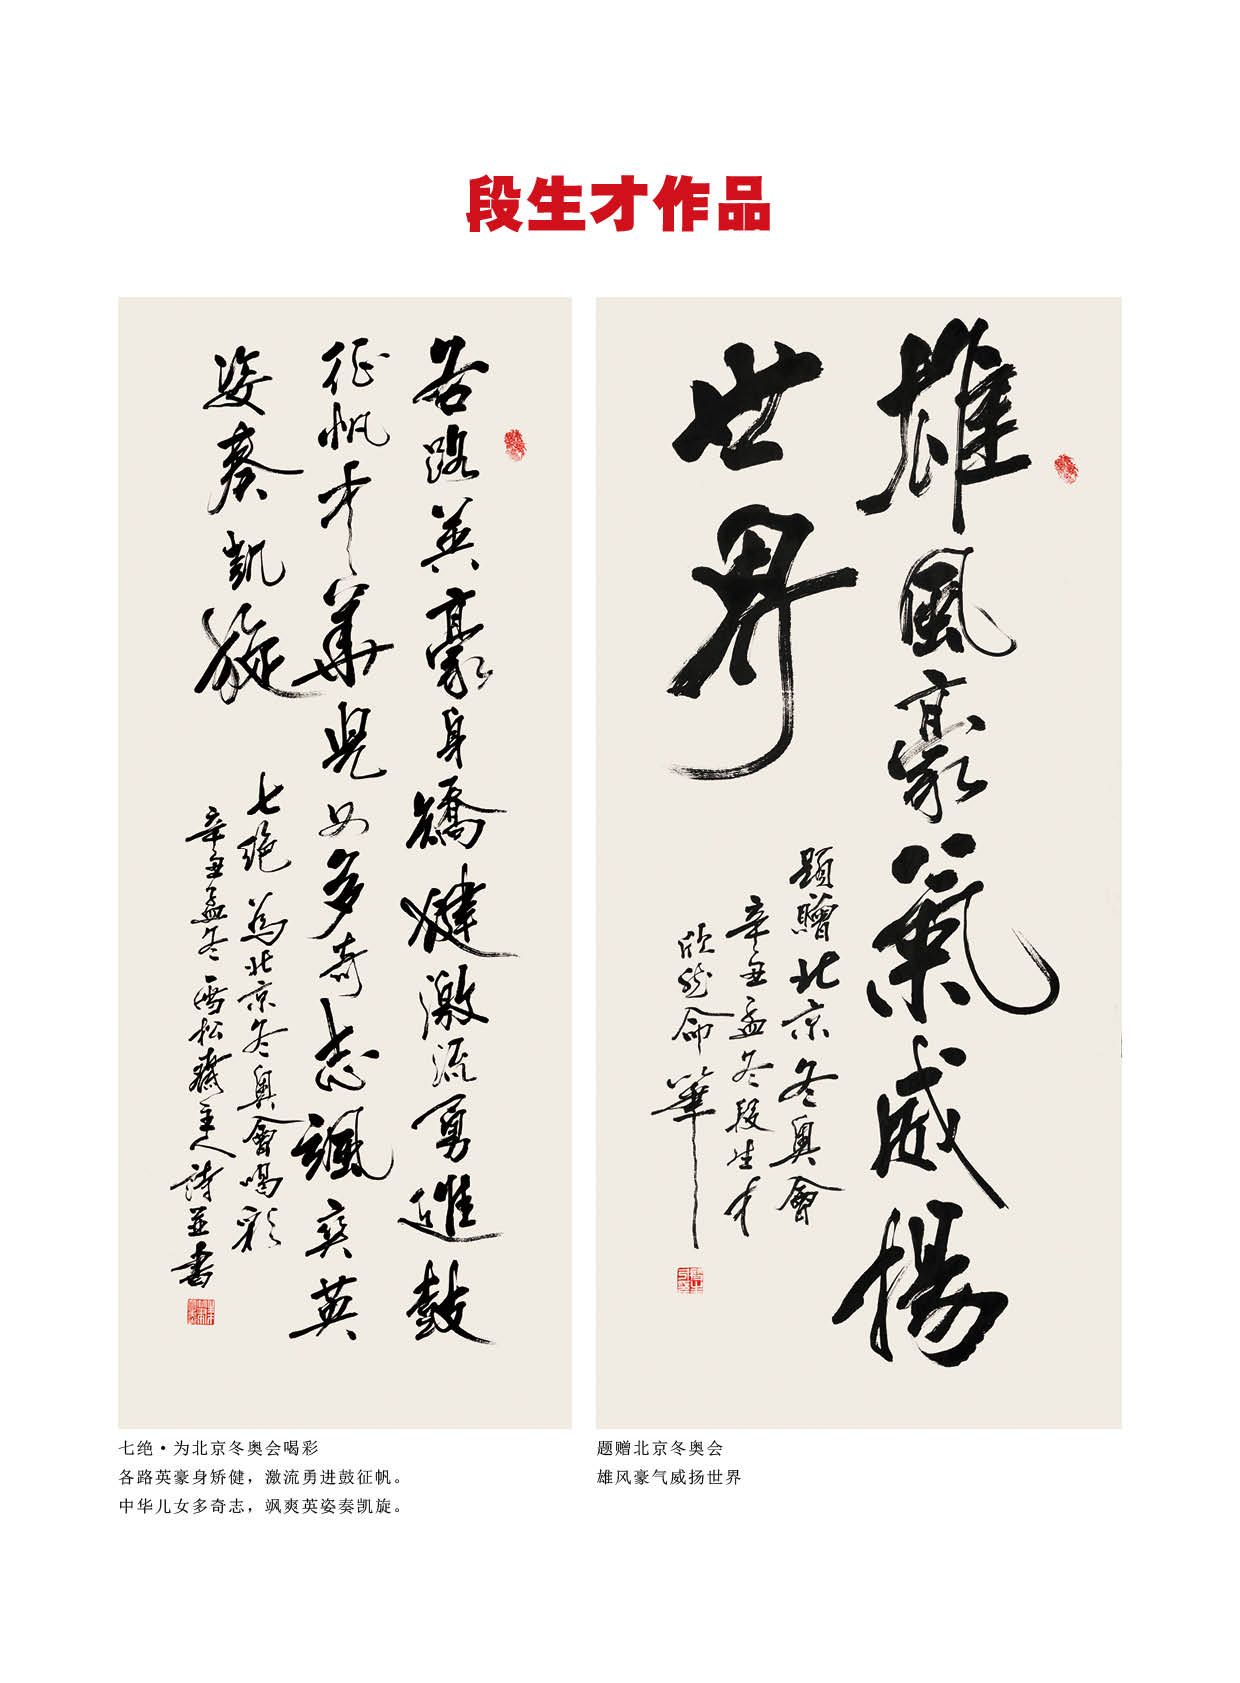 段生才作品
各路英豪身矯健激流勇進鼓
征帆中華兒女多奇志颯爽英
姿奏凱旋
七绝為北京冬奥會喝彩
辛丑孟冬雪松齋主人詩並書
雄風豪氣威揚
世界
題贈北京冬奥會
辛丑孟冬段生才
欣然命筆
七绝·为北京冬奥会喝彩
各路英豪身矫健，激流勇进鼓征帆。
中华儿女多奇志，飒爽英姿奏凯旋。
题赠北京冬奥会
雄风豪气威扬世界